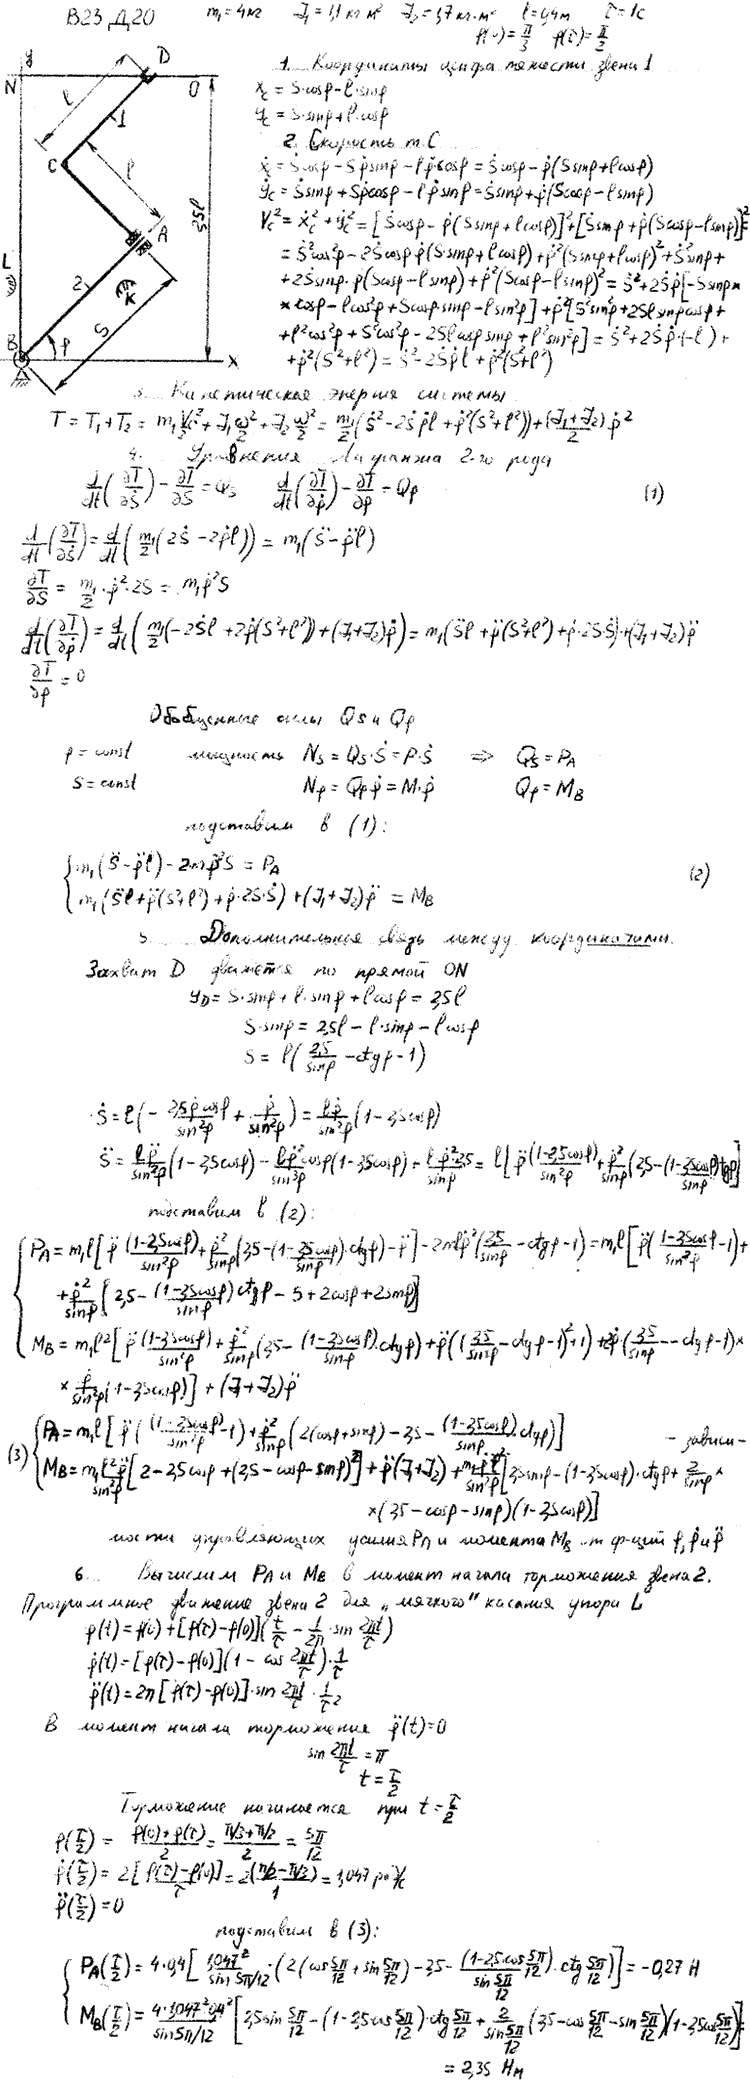 В23 Д20   m₁ = 4 кг   J₁ = 1,1 кг м²   J₂ = 1,7 кг·м²   l = 0,4 м   τ = 1с
φ(0) = π/3   φ(τ) = π/2
y
N
D
O
l
1
C
l
2,5l
A
L
2
K
S
B
φ
x
1. Координаты центра тяжести звена 1
x_c = S·cosφ − l·sinφ
y_c = S·sinφ + l·cosφ
2. Скорость т. C
ẋ_c = Ṡcosφ − Sφ̇sinφ − lφ̇cosφ = Ṡcosφ − φ̇(Ssinφ + lcosφ)
ẏ_c = Ṡsinφ + Sφ̇cosφ − lφ̇sinφ = Ṡsinφ + φ̇(Scosφ − lsinφ)
V_c² = ẋ_c² + ẏ_c² = [Ṡcosφ − φ̇(Ssinφ + lcosφ)]² + [Ṡsinφ + φ̇(Scosφ − lsinφ)]² =
= Ṡ²cos²φ − 2Ṡcosφ φ̇(S·sinφ + lcosφ) + φ̇²(Ssinφ + lcosφ)² + Ṡ²sin²φ +
+ 2Ṡsinφ·φ̇(Scosφ − lsinφ) + φ̇²(Scosφ − lsinφ)² = Ṡ² + 2Ṡφ̇[−Ssinφ ×
× cosφ − lcos²φ + Scosφ·sinφ − lsin²φ] + φ̇²[S²sin²φ + 2Slsinφcosφ +
+ l²cos²φ + S²cos²φ − 2Slcosφsinφ + l²sin²φ] = Ṡ² + 2Ṡφ̇(−l) +
+ φ̇²(S² + l²) = Ṡ² − 2Ṡφ̇l + φ̇²(S² + l²)
3. Кинетическая энергия системы
T = T₁ + T₂ = m₁V_c²/2 + J₁ω²/2 + J₂ω²/2 = m₁/2 (Ṡ² − 2Ṡφ̇l + φ̇²(S² + l²)) + (J₁ + J₂)/2 φ̇²
4. Уравнения Лагранжа 2-го рода
d/dt(∂T/∂Ṡ) − ∂T/∂S = Q_S   d/dt(∂T/∂φ̇) − ∂T/∂φ = Q_φ   (1)
d/dt(∂T/∂Ṡ) = d/dt(m₁/2 (2Ṡ − 2φ̇l)) = m₁(S̈ − φ̈l)
∂T/∂S = m₁/2 · φ̇²·2S = m₁φ̇²S
d/dt(∂T/∂φ̇) = d/dt(m₁/2 (−2Ṡl + 2φ̇(S² + l²)) + (J₁ + J₂)φ̇) = m₁(S̈l + φ̈(S² + l²) + φ̇·2S·Ṡ) + (J₁ + J₂)φ̈
∂T/∂φ = 0
Обобщенные силы Q_S и Q_φ
φ = const   мощность   N_S = Q_S·Ṡ = P·Ṡ   ⇒   Q_S = P_A
S = const   N_φ = Q_φ φ̇ = M·φ̇   Q_φ = M_B
подставим в (1):
{ m₁(S̈ − φ̈l) − 2mφ̇²S = P_A
m₁(S̈l + φ̈(S² + l²) + φ̇·2S·Ṡ) + (J₁ + J₂)φ̈ = M_B   (2)
5. Дополнительная связь между координатами.
Захват D движется по прямой ON
y_D = S·sinφ + l·sinφ + lcosφ = 2,5l
S·sinφ = 2,5l − l·sinφ − lcosφ
S = l(2,5/sinφ − ctgφ − 1)
Ṡ = l(−2,5φ̇cosφ/sin²φ + φ̇/sin²φ) = lφ̇/sin²φ (1 − 2,5cosφ)
S̈ = lφ̈/sin²φ (1 − 2,5cosφ) − lφ̇²/sin³φ cosφ(1 − 2,5cosφ) + l·φ̇²·2,5/sinφ = l[φ̈(1 − 2,5cosφ)/sin²φ + φ̇²/sinφ (2,5 − (1 − 2,5cosφ)/sinφ ctgφ)]
подставим в (2):
{ P_A = m₁l[φ̈ (1 − 2,5cosφ)/sin²φ + φ̇²/sinφ (2,5 − (1 − 2,5cosφ)/sinφ · ctgφ) − φ̈] − 2mlφ̇²(2,5/sinφ − ctgφ − 1) = m₁l[φ̈((1 − 2,5cosφ)/sin²φ − 1) +
+ φ̇²/sinφ [2,5 − (1 − 2,5cosφ)/sinφ ctgφ − 5 + 2cosφ + 2sinφ]]
M_B = m₁l²[φ̈ (1 − 2,5cosφ)/sin²φ + φ̇²/sinφ (2,5 − (1 − 2,5cosφ)/sinφ · ctgφ) + φ̈((2,5/sinφ − ctgφ − 1)² + 1) + 2φ̇(2,5/sinφ − ctgφ − 1) ×
× φ̇/sin²φ (1 − 2,5cosφ)] + (J₁ + J₂)φ̈
(3) { P_A = m₁l[φ̈((1 − 2,5cosφ)/sin²φ − 1) + φ̇²/sinφ (2(cosφ + sinφ) − 2,5 − (1 − 2,5cosφ)/sinφ · ctgφ)]   - зависи-
M_B = m₁l²φ̈/sin²φ [2 − 2,5cosφ + (2,5 − cosφ − sinφ)²] + φ̈(J₁ + J₂) + m₁φ̇²l²/sin²φ [2,5sinφ − (1 − 2,5cosφ)·ctgφ + 2/sinφ ×
× (2,5 − cosφ − sinφ)(1 − 2,5cosφ)]
мости управляющих усилия P_A и момента M_B от ф-ций φ, φ̇ и φ̈
6. Вычислим P_A и M_B в момент начала торможения звена 2.
Программное движение звена 2 для „мягкого" касания упора L
φ(t) = φ(0) + [φ(τ) − φ(0)](t/τ − 1/2π · sin 2πt/τ)
φ̇(t) = [φ(τ) − φ(0)](1 − cos 2πt/τ)·1/τ
φ̈(t) = 2π[φ(τ) − φ(0)]·sin 2πt/τ · 1/τ²
В момент начала торможения φ̈(t) = 0
sin 2πt/τ = π
t = τ/2
Торможение начинается при t = τ/2
φ(τ/2) = (φ(0) + φ(τ))/2 = (π/3 + π/2)/2 = 5π/12
φ̇(τ/2) = 2[φ(τ) − φ(0)]/τ = 2(π/2 − π/3)/1 = 1,047 рад/с
φ̈(τ/2) = 0
подставим в (3):
{ P_A(τ/2) = 4·0,4[1,047²/sin 5π/12 · (2(cos 5π/12 + sin 5π/12) − 2,5 − (1 − 2,5·cos 5π/12)/sin 5π/12 · ctg 5π/12)] = −0,27 Н
M_B(τ/2) = 4·1,047²·0,4²/sin 5π/12 [2,5sin 5π/12 − (1 − 2,5cos 5π/12)·ctg 5π/12 + 2/sin 5π/12 (2,5 − cos 5π/12 − sin 5π/12)(1 − 2,5cos 5π/12)] =
= 2,35 Нм